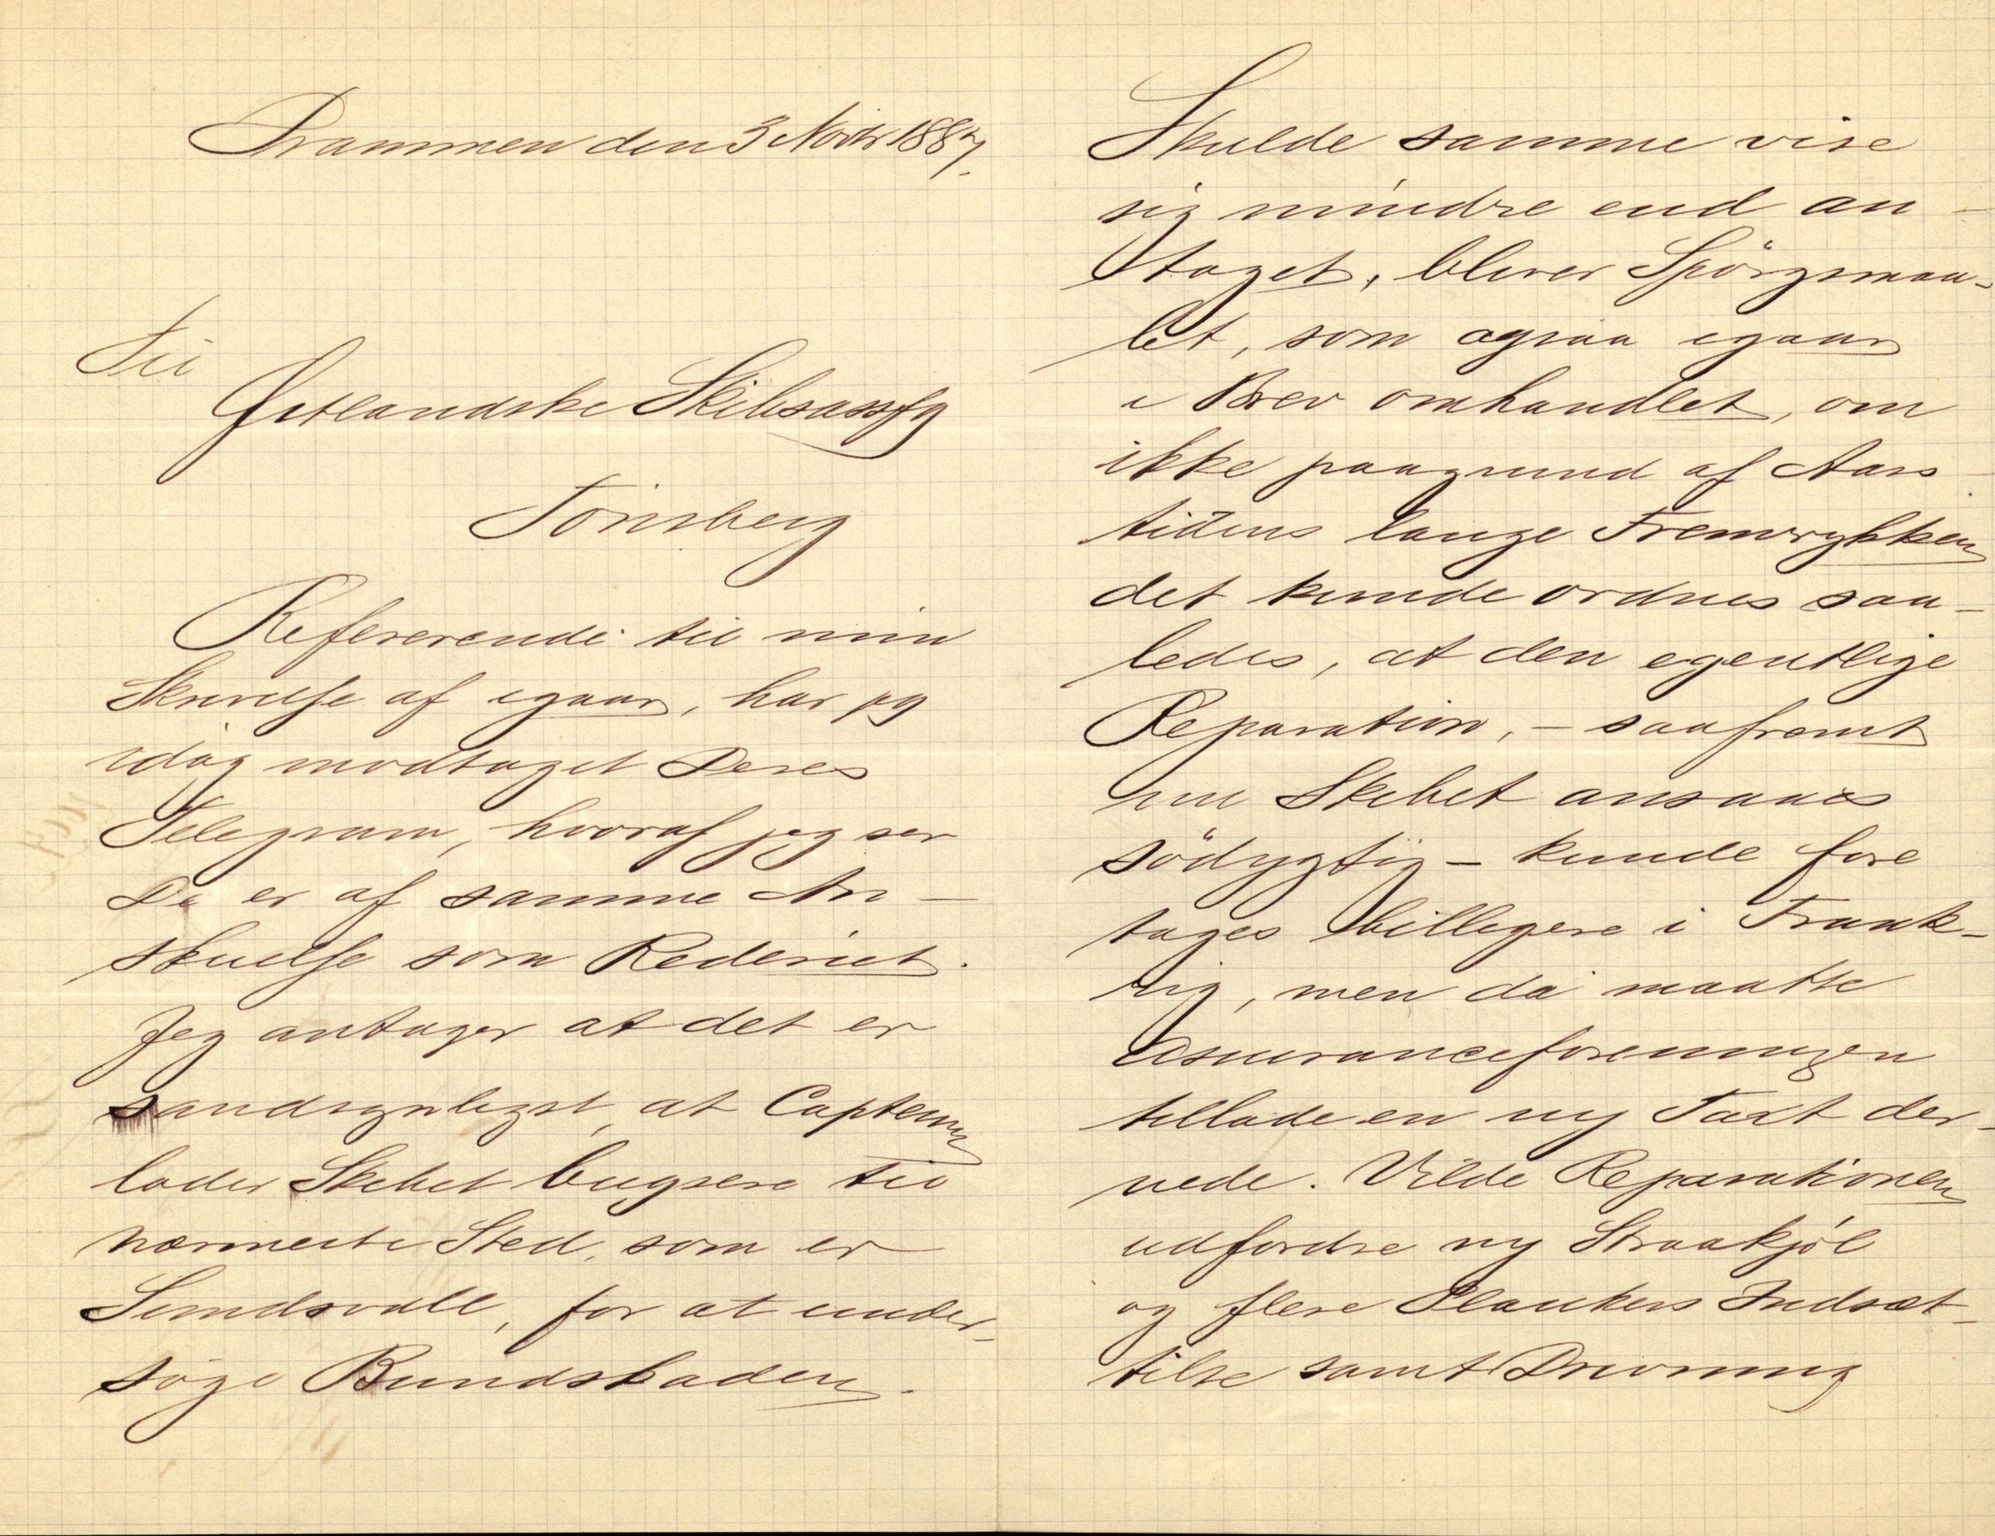 Drammen den 3 Novbr 1887.
Til
Østlandske Skibsassfg
Tønsberg
Refererende til min
Skrivelse af igaar, har jeg
idag modtaget Deres
Telegram, hvoraf jeg ser
De er af samme An-
skuelse som Rederiet.
Jeg antager at det er
sandsynligst, at Captein
lader Skibet bugsere til
nærmeste Sted, som er
Sundsvall, for at under-
søge Bundskaden.
Skulde samme vise
sig mindre end an-
taget, bliver Spörgsmaa-
let, som ogsaa igaar
i Brev omhandlet, om
ikke paagrund af Aars
tidens lange Fremrykken
det kunde ordnes saa-
ledes, at den egentlige
Reparation, - saafremt
nu Skibet ansaaes
södygtig - kunde fore
tages billigere i Frank-
rig, men da maatte
Assuranceforeningen
tillade en ny Taxt der-
nede. Vilde Reparationen
udfordre ny Straakjøl
og flere Plankers Indsæt-
telse samt Drivning